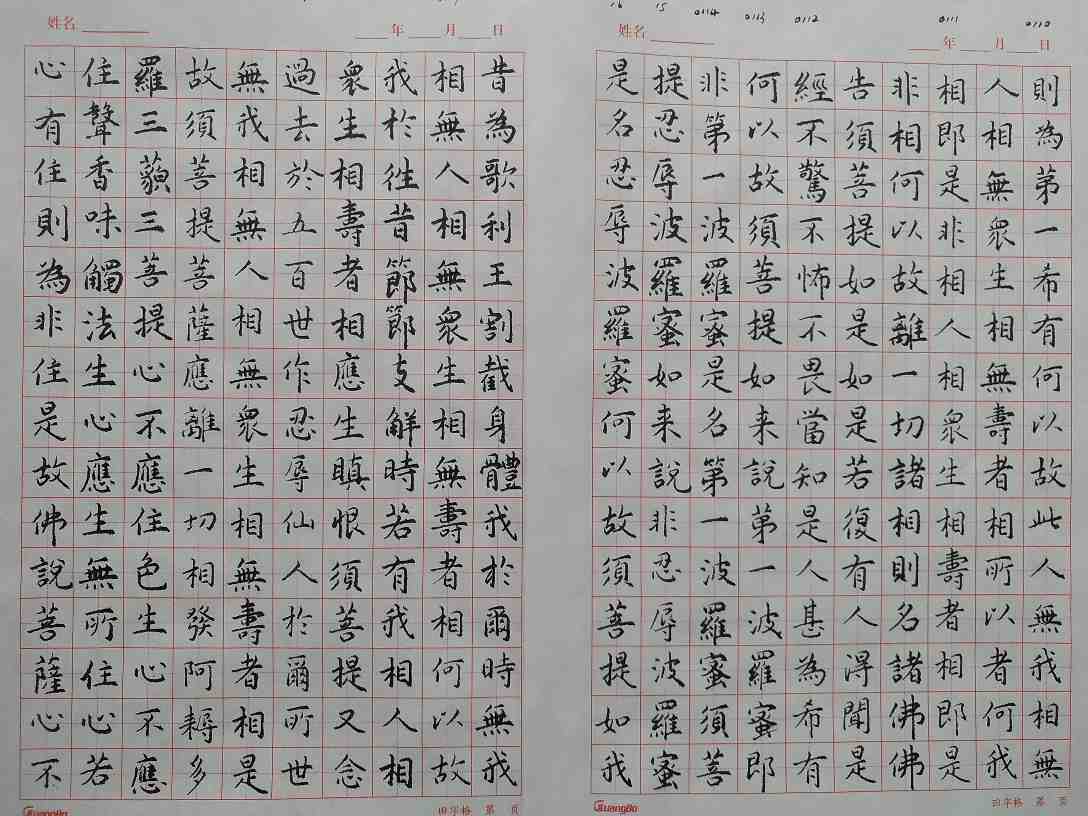 0110
0111
0112
0113
0114
15
16
姓名
年 月 日
則為苐一希有何以故此人無我相無
人相無衆生相無壽者相所以者何我
相即是非相人相衆生相壽者相即是
非相何以故離一切諸相則名諸佛佛
告須菩提如是如是若復有人得聞是
經不驚不怖不畏當知是人甚為希有
何以故須菩提如来說苐一波羅蜜即
非第一波羅蜜是名第一波羅蜜須菩
提忍辱波羅蜜如来說非忍辱波羅蜜
是名忍辱波羅蜜何以故須菩提如我
田字格 第 页
姓名
年 月 日
昔為歌利王割截身體我於爾時無我
相無人相無衆生相無壽者相何以故
我於徃昔節節支解時若有我相人相
衆生相壽者相應生瞋恨須菩提又念
過去於五百世作忍辱仙人於爾所世
無我相無人相無衆生相無壽者相是
故須菩提菩薩應離一切相發阿耨多
羅三藐三菩提心不應住色生心不應
住聲香味觸法生心應生無所住心若
心有住則為非住是故佛說菩薩心不
田字格 第 页